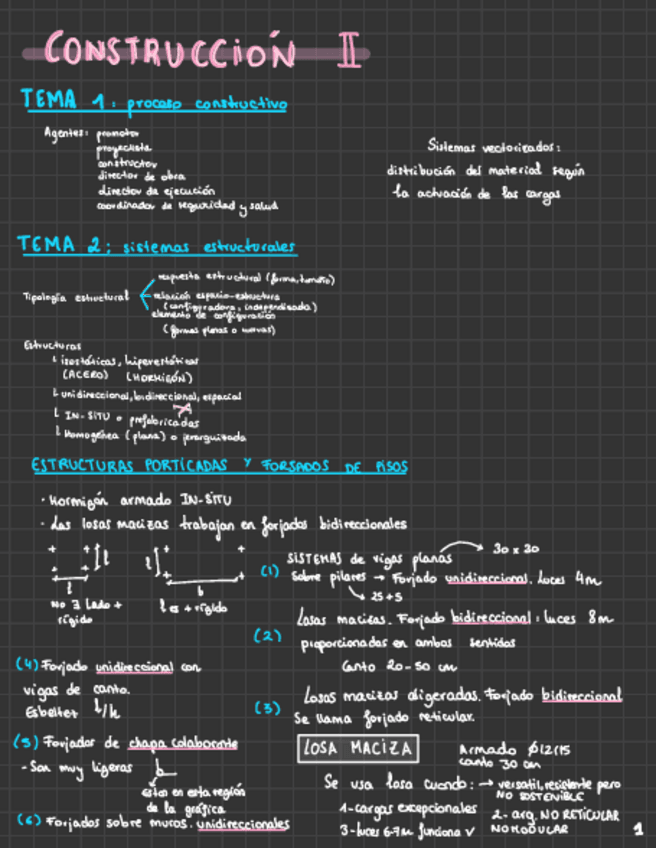 CONSTRUCCIÓN II
TEMA 1: proceso constructivo
Agentes: promotor
proyectista
constructor
director de obra
director de ejecución
coordinador de seguridad y salud
Sistemas vectorizados:
distribución del material según
la actuación de las cargas
TEMA 2: sistemas estructurales
Tipología estructural
respuesta estructural (forma, tamaño)
relación espacio-estructura
(configuradora, independizada)
elemento de configuración
(formas planas o curvas)
Estructuras
isostáticas, hiperestáticas
(ACERO) (HORMIGÓN)
unidireccional, bidireccional, espacial
IN-SITU o prefabricadas
Homogénea (plana) o jerarquizada
ESTRUCTURAS PORTICADAS Y FORJADOS DE PISOS
· Hormigón armado IN-SITU
· Las losas macizas trabajan en forjados bidireccionales
No ∃ lado +
rígido
l es + rígido
(1) SISTEMAS de vigas planas → 30 x 30
sobre pilares → Forjado unidireccional. Luces 4m
25+5
(2) Losas macizas. Forjado bidireccional: luces 8m
proporcionadas en ambos sentidos
Canto 20-50 cm
(3) Losas macizas aligeradas. Forjado bidireccional
Se llama forjado reticular.
(4) Forjado unidireccional con
vigas de canto.
Esbeltez L/h
(5) Forjados de chapa colaborante
- Son muy ligeras
están en esta región
de la gráfica
(6) Forjados sobre muros. unidireccionales
LOSA MACIZA
Armado φ12/15
canto 30 cm
Se usa losa cuando: → versatil, resistente pero
NO SOSTENIBLE
1-cargas excepcionales
2- arq. NO RETICULAR
NO MODULAR
3-luces 6-7m funciona ✓
1